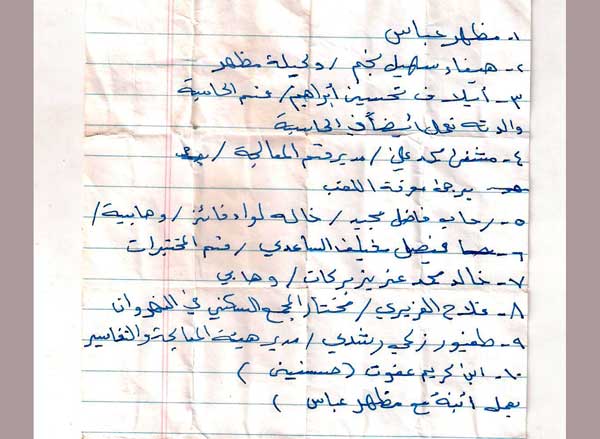 ١. مظهر عباس
٢- هيفاء سهيل نجم / وكيلة مظهر
٣- أيلاف تحسين أبراهيم / قسم الحاسبة
والدته تعمل ايضاً في الحاسبة
٤- محمد علي / مدير قسم المعالجة /
يرجى معرفة اللقب
٥- رحاب فاضل مجيد / خاله لواء فائز / وهابية /
٦- فيصل مخيلف الساعدي / قسم المختبرات
٧- خالد محمد عزيز بركات / وهابي
٨- فلاح الغريري / مختار المجمع السكني في النهروان
٩- طغيور زكي رشدي / مدير هيئة المعالجة والتفاسير
١٠- ابن كريم عفوت (
يعمل ابنة مع مظهر عباس )